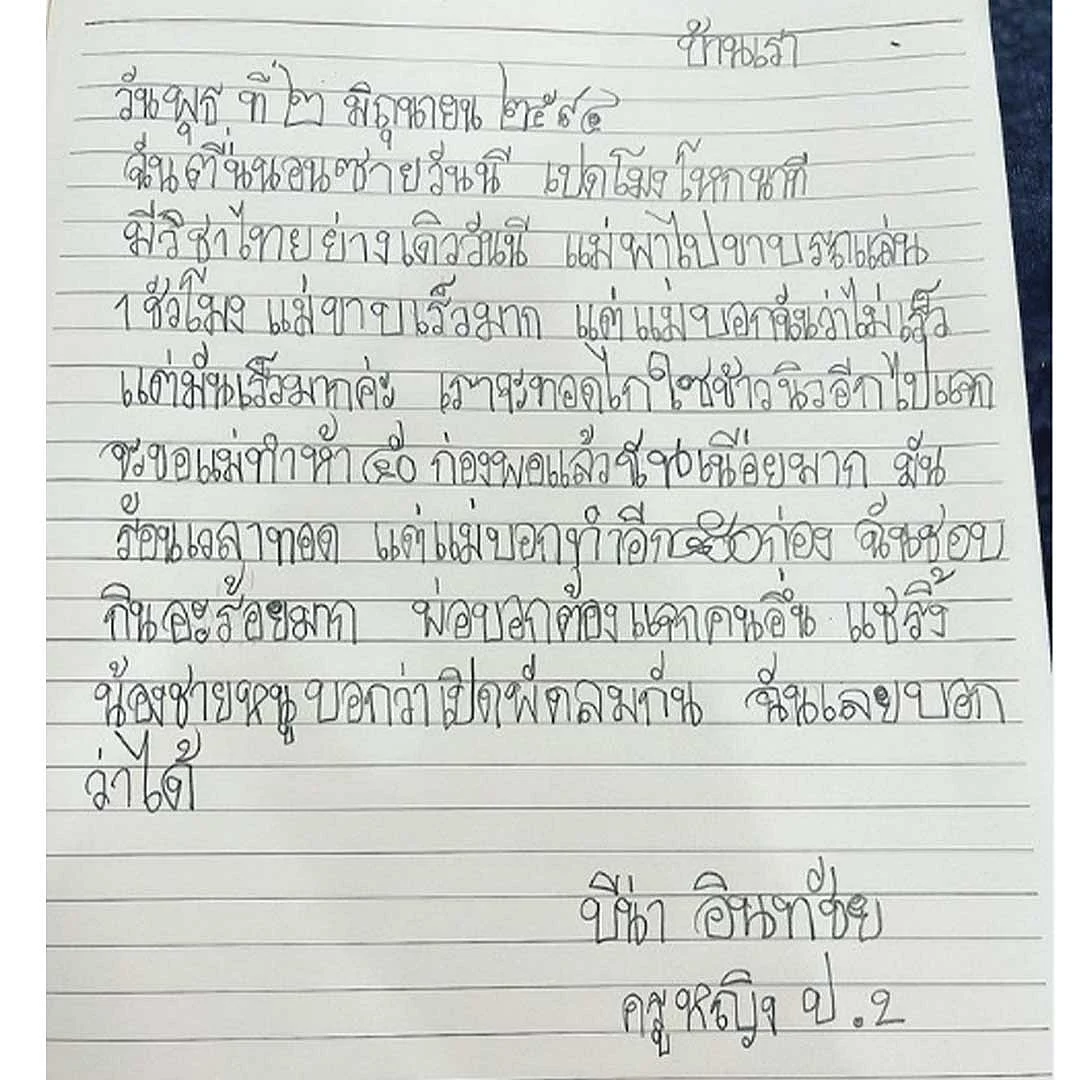 บ้านเรา
วันพุธ ที่ ๒ มิถุนายน ๒๕๙๔
ฉันตื่นนอนซายวันนี เปดโมงโหกนาที
มีวิชาไทยย่างเดิววันนี แม่พาไปขาบรถแล่น
1 ชัวโมง แม่ขาบเร็วมาก แต่แม่บอกฉันว่าไม่เร็ว
แต่มันเร็วมากค่ะ เราจะทอดไก่ใซข้าวนิวอีกไปแจก
จะขอแม่ทำห้า ๕๐ ก่องพอแล้วฉันเนื่อยมาก มัน
ร้อนเวลาทอด แต่แม่บอกทำอีก ก่อง ฉันชอบ
กินอะร้อยมาก พ่อบอกต้องแจกคนอื่น แชริ้ง
น้องชายหนูบอกว่าเปิดพัดลมกัน ฉันเลยบอก
ว่าได้
บีน่า อินทชัย
ครูหญิง ป.2